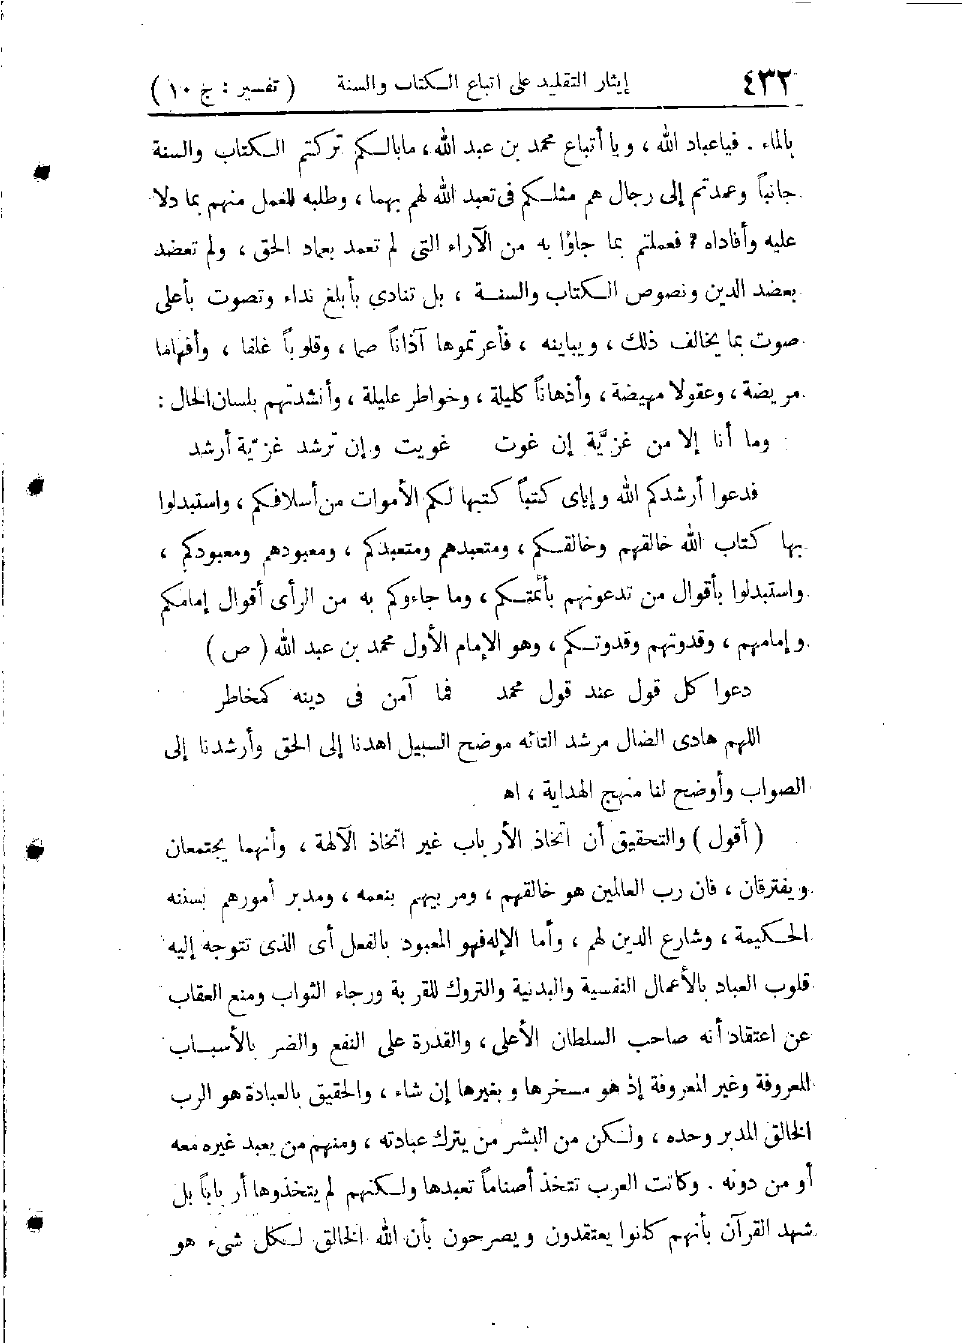 ٤٣٢ إيثار التقليد على اتباع الكتاب والسنة ( تفسير : ج ١٠ )
بالماء . فياعباد الله ، ويا أتباع محمد بن عبد الله ، مابالكم تركتم الكتاب والسنة
جانباً وعمدتم إلى رجال هم مثلكم فى تعبد الله لهم بهما ، وطلبه للعمل منهم بما دلا
عليه وأفاداه ؟ فعملتم بما جاؤا به من الآراء التى لم تعمد بعماد الحق ، ولم تعضد
بعضد الدين ونصوص الكتاب والسنة ، بل تنادي بأبلغ نداء وتصوت بأعلى
صوت بما يخالف ذلك ، ويباينه ، فأعرتموها آذاناً صما ، وقلوباً غلفا ، وأفهاما
مريضة ، وعقولا مهيضة ، وأذهاناً كليلة ، وخواطر عليلة ، وأنشدتهم بلسان الحال :
وما أنا إلا من غزيَّة إن غوت غويت وإن ترشد غزيّة أرشد
فدعوا أرشدكم الله وإياى كتباً كتبها لكم الأموات من أسلافكم ، واستبدلوا
بها كتاب الله خالقهم وخالقكم ، ومتعبدهم ومتعبدكم ، ومعبودهم ومعبودكم ،
واستبدلوا بأقوال من تدعونهم بأئمتكم ، وما جاءوكم به من الرأى أقوال إمامكم
وإمامهم ، وقدوتهم وقدوتكم ، وهو الإمام الأول محمد بن عبد الله ( ص )
دعوا كل قول عند قول محمد فما آمن فى دينه كمخاطر
اللهم هادى الضال مرشد التائه موضح السبيل اهدنا إلى الحق وأرشدنا إلى
الصواب وأوضح لنا منهج الهداية ، اه
( أقول ) والتحقيق أن اتخاذ الأرباب غير اتخاذ الآلهة ، وأنهما يجتمعان
ويفترقان ، فان رب العالمين هو خالقهم ، ومربيهم بنعمه ، ومدبر أمورهم بسننه
الحكيمة ، وشارع الدين لهم ، وأما الإله فهو المعبود بالفعل أى الذى تتوجه إليه
قلوب العباد بالأعمال النفسية والبدنية والتروك للقربة ورجاء الثواب ومنع العقاب
عن اعتقاد أنه صاحب السلطان الأعلى ، والقدرة على النفع والضر بالأسباب
المعروفة وغير المعروفة إذ هو مسخرها وبغيرها إن شاء ، والحقيق بالعبادة هو الرب
الخالق المدبر وحده ، ولكن من البشر من يترك عبادته ، ومنهم من يعبد غيره معه
أو من دونه . وكانت العرب تتخذ أصناماً تعبدها ولكنهم لم يتخذوها أرباباً بل
شهد القرآن بأنهم كانوا يعتقدون ويصرحون بأن الله الخالق لكل شىء هو